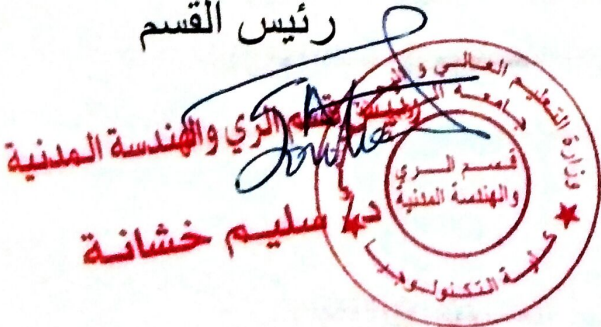 رئيس القسم
رئيس قسم الري والهندسة المدنية
د/ سليم خشانة
وزارة التعليم العالي و
جامعة
قسم الري
والهندسة المدنية
كلية التكنولوجيا